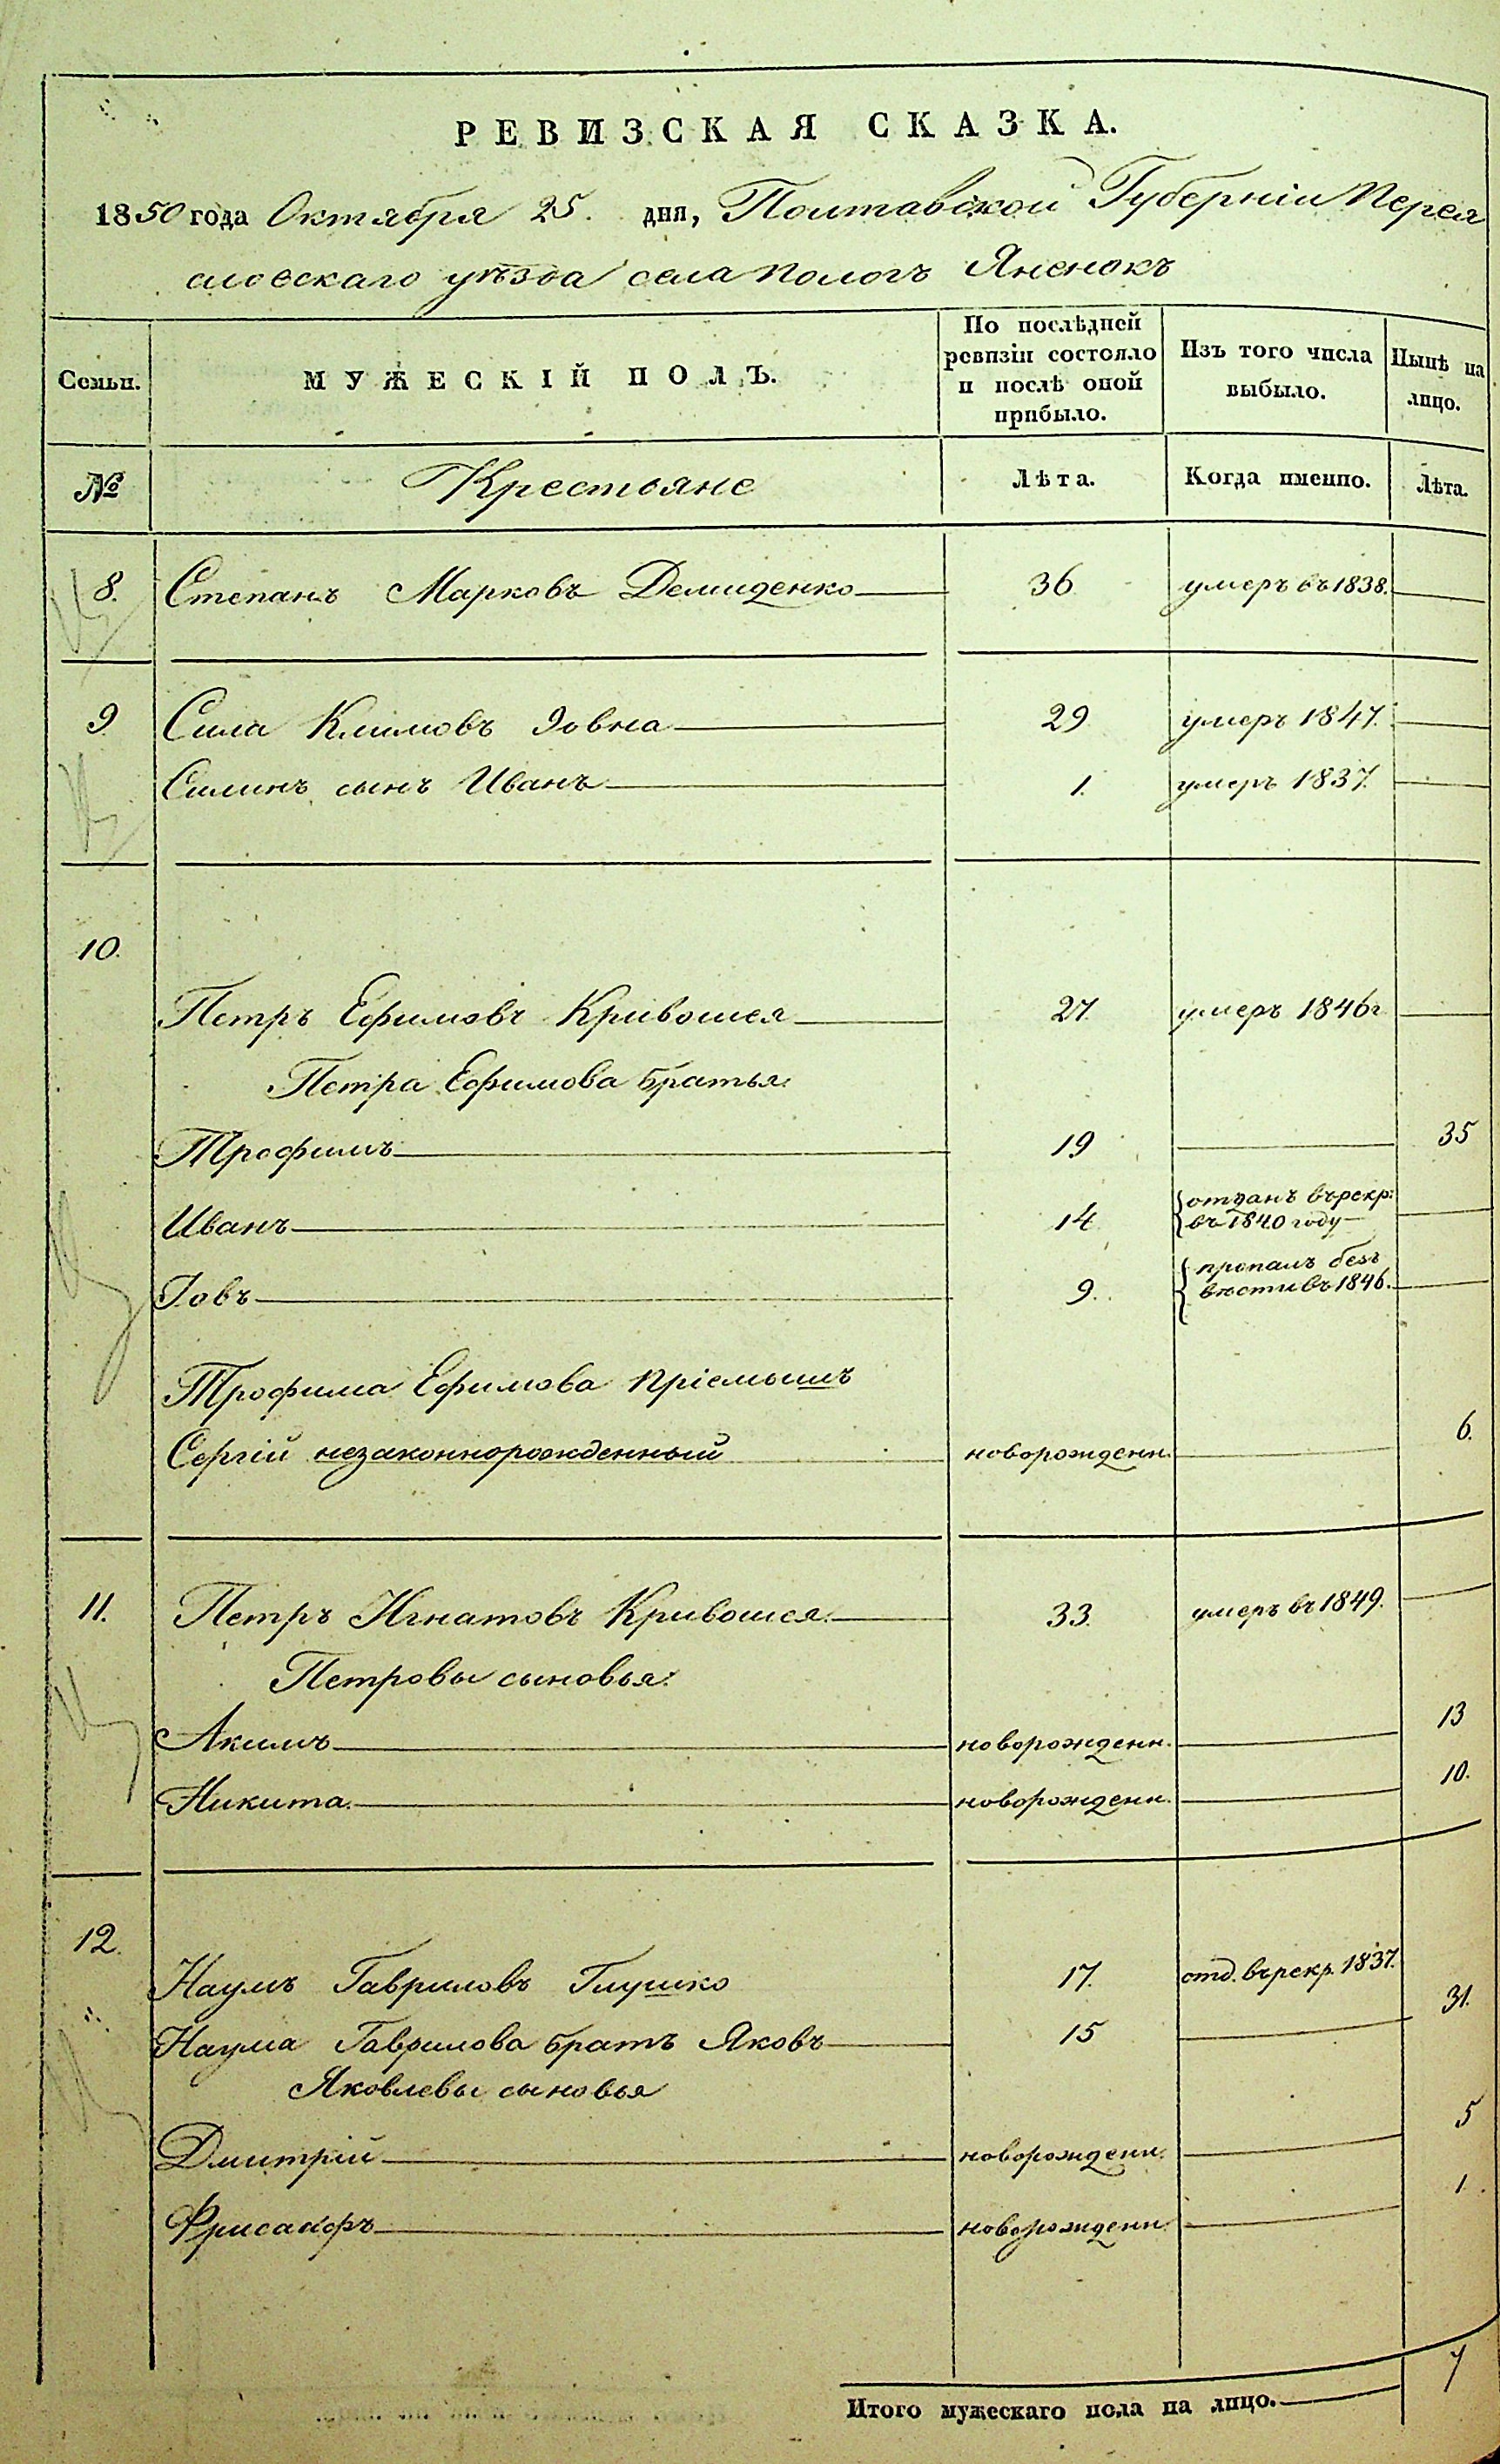 РЕВИЗСКАЯ СКАЗКА.
1850 года Октября 25. дня, Полтавской Губерніи Перея
словскаго уѣзда села Пологъ Яненокъ
Семьи. МУЖЕСКІЙ ПОЛЪ. По послѣдней ревизіи состояло и послѣ оной прибыло. Изъ того числа выбыло. Нынѣ на лицо.
№ Крестьяне Лѣта. Когда именно. Лѣта.
8. Степанъ Марковъ Демиденко 36 умеръ въ 1838.
9 Сила Климовъ Іовна 29 умеръ 1847.
Силинъ сынъ Иванъ 1. умеръ 1837.
10.
Петръ Ефимовъ Кривошея 27 умеръ 1846 г
Петра Ефимова братья
Трофимъ 19 35
Иванъ 14 отданъ въ рекр: въ 1840 году
Іовъ 9. пропалъ безъ вѣсти въ 1846.
Трофима Ефимова пріемышъ
Сергій незаконнорожденный новорожденн. 6.
11. Петръ Игнатовъ Кривошея 33. умеръ въ 1849.
Петровы сыновья:
Акимъ новорожденн. 13
Никита новорожденн. 10.
12.
Наумъ Гавриловъ Глушко 17. отд. въ рекр. 1837.
Наума Гаврилова братъ Яковъ 15 31.
Яковлевы сыновья
Дмитрій новорожденн. 5
новорожденн 1.
Итого мужескаго пола на лицо. 7